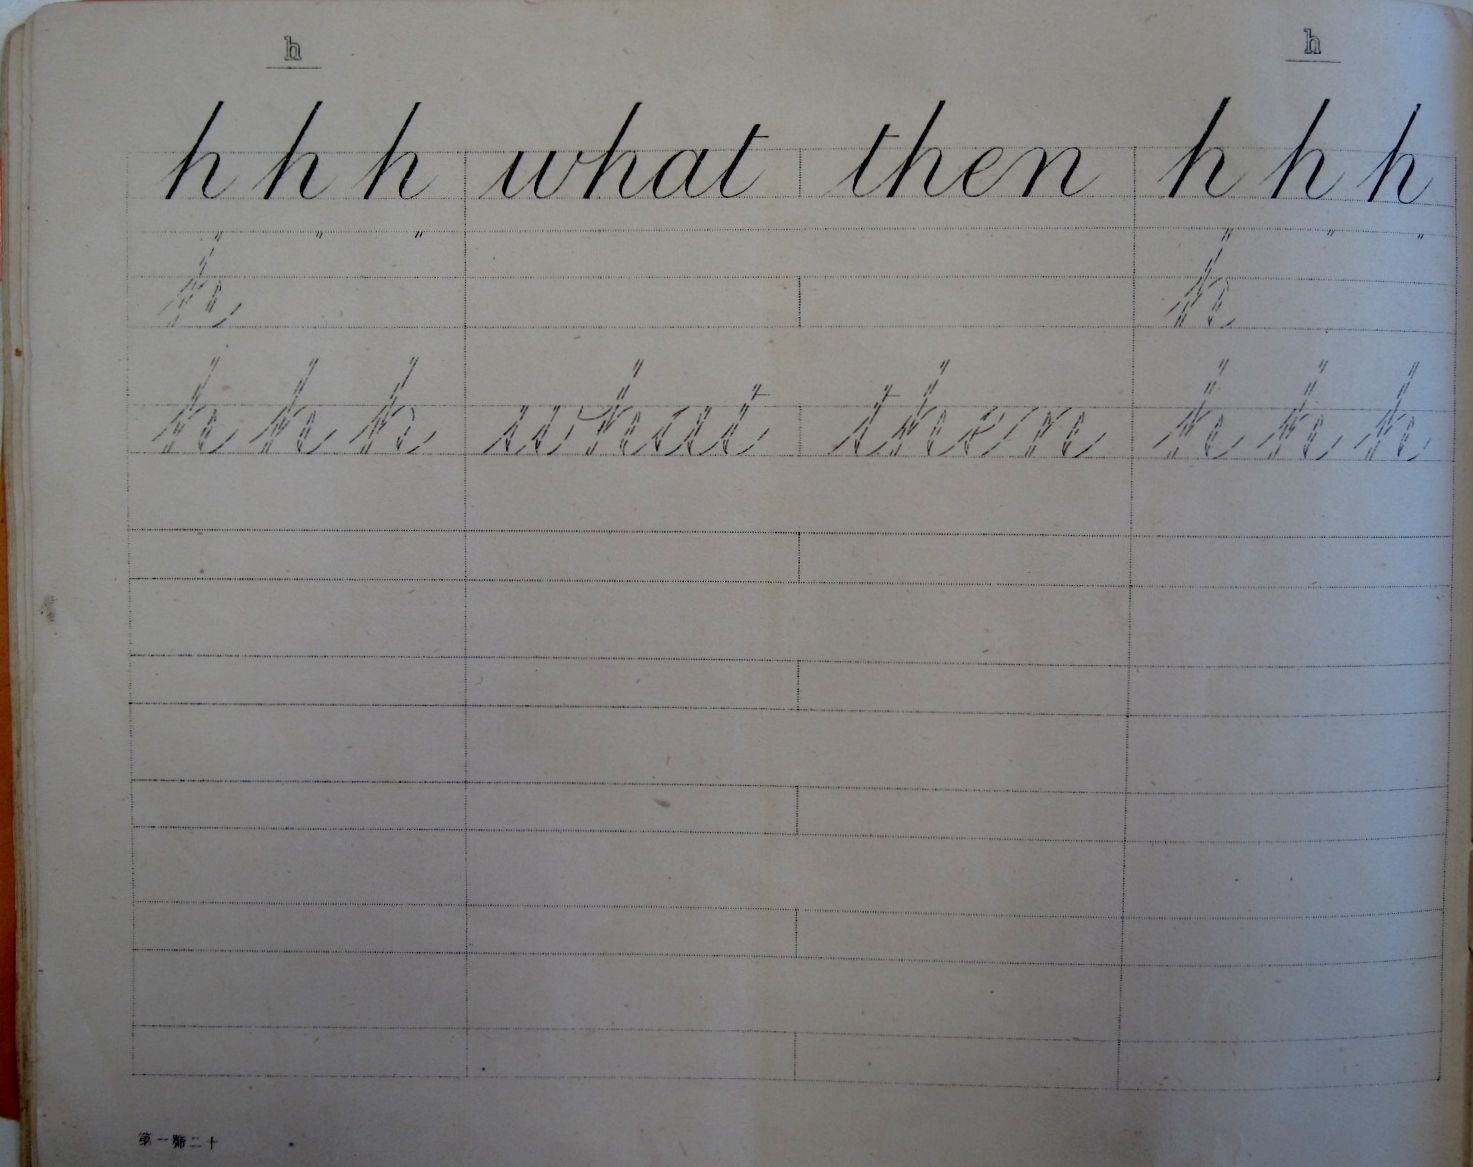 h h
h h h what then h h h
h h
h h h what then h h h